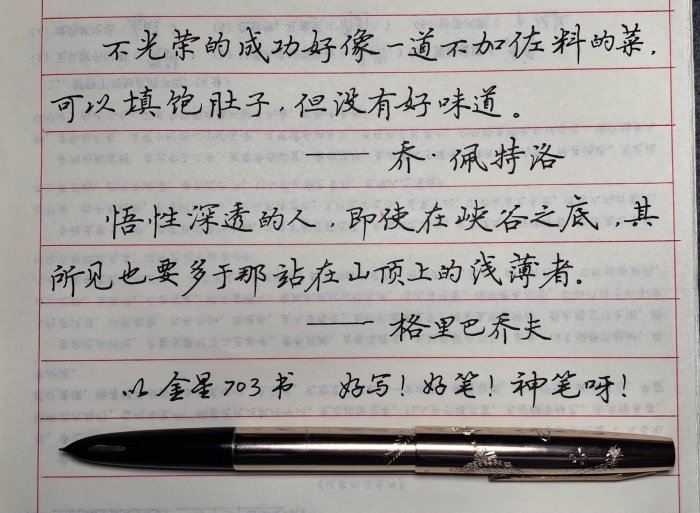 不光荣的成功好像一道不加佐料的菜,
可以填饱肚子,但没有好味道。
——乔·佩特洛
悟性深透的人,即使在峡谷之底,其
所见也要多于那站在山顶上的浅薄者。
——格里巴乔夫
以金星703书 好写!好笔!神笔呀!